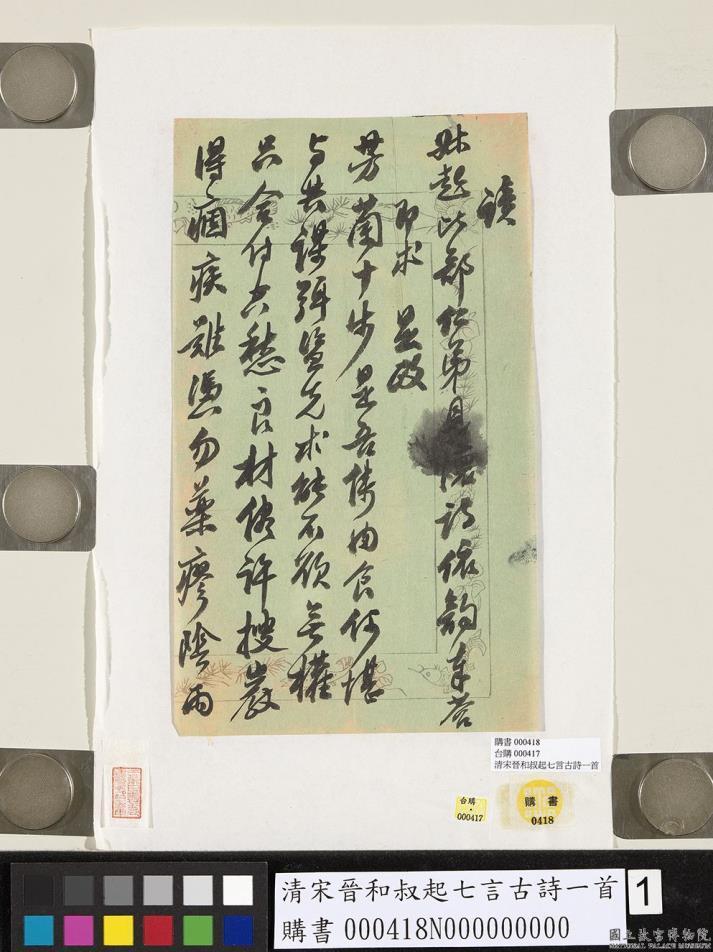 讀
叔起比部仁弟見懷詩依韵奉答
即求 是政
芳蘭十步是吾儔肉食何堪
与共謀弭盜先求能不欲無權
只合付愁良材倘許搜巖
得痼疾難憑勿藥瘳陰雨
購書 000418
台購 000417
清宋晉和叔起七言古詩一首
台購
000417
購書
0418
清宋晉和叔起七言古詩一首
購書 000418N000000000
1
國立故宮博物院
NATIONAL PALACE MUSEUM